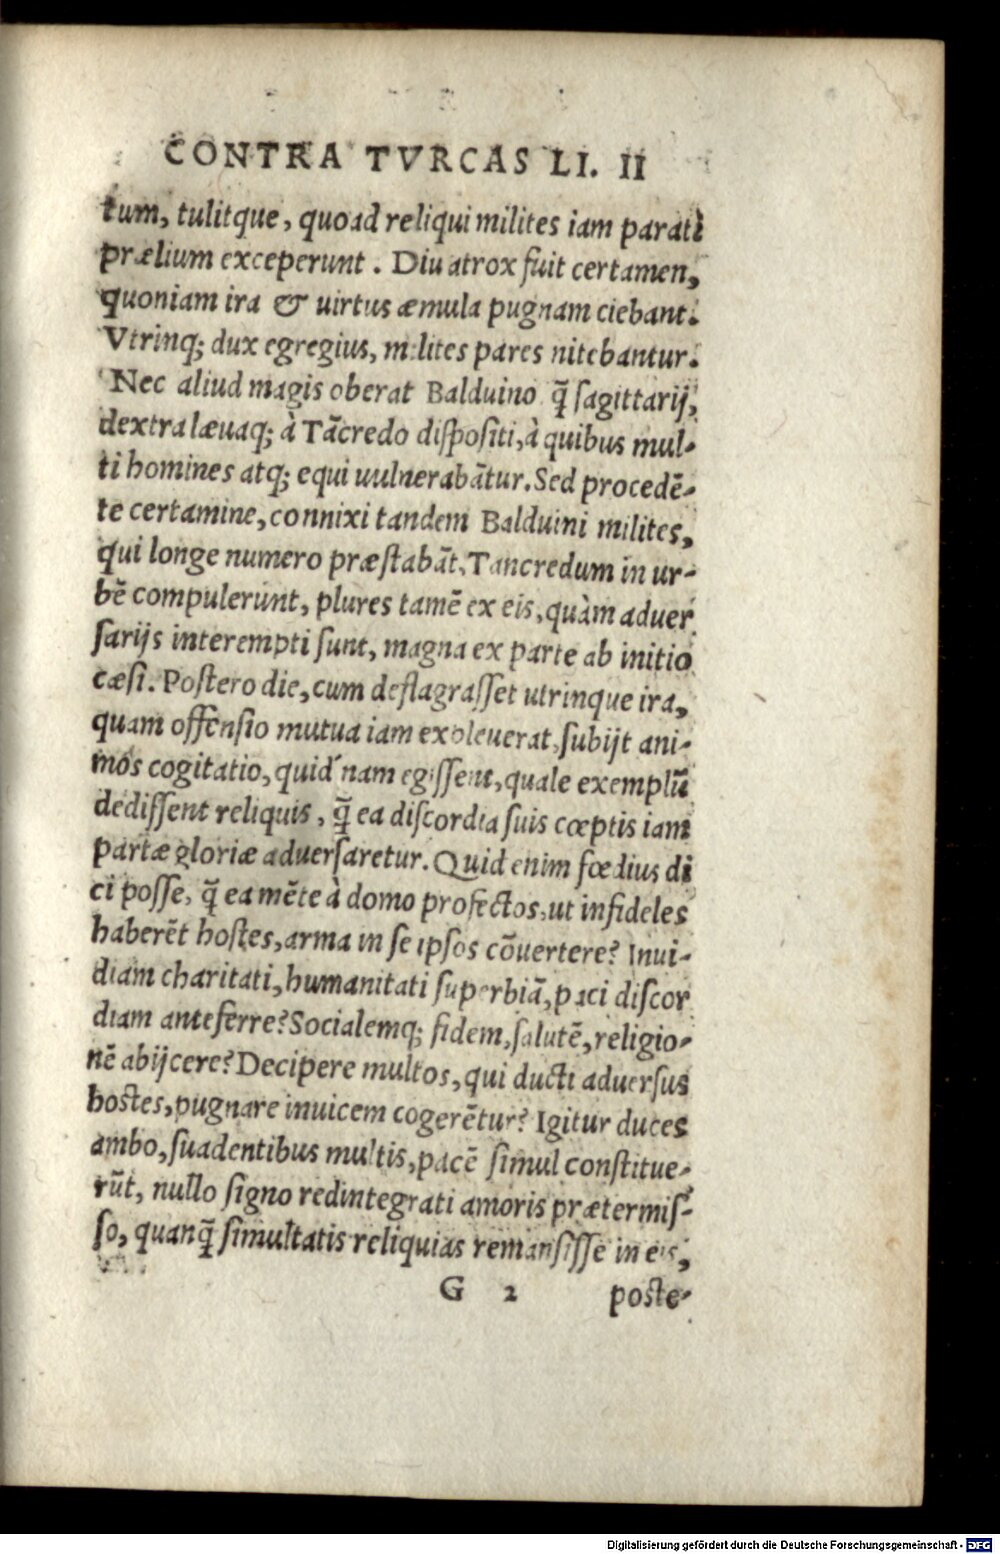 CONTRA TVRCAS LI. II
tum, tulitque, quoad reliqui milites iam parati
prælium exceperunt. Diu atrox fuit certamen,
quoniam ira & uirtus æmula pugnam ciebant.
Vtrinq; dux egregius, milites pares nitebantur.
Nec aliud magis oberat Balduino q̃ ſagittarij,
dextra læuaq; à Tãcredo diſpoſiti, à quibus mul-
ti homines atq; equi uulnerabãtur. Sed procedẽ-
te certamine, connixi tandem Balduini milites,
qui longe numero præſtabãt, Tancredum in ur-
bẽ compulerunt, plures tamẽ ex eis, quàm aduer
ſarijs interempti ſunt, magna ex parte ab initio
cæſi. Poſtero die, cum deflagraſſet utrinque ira,
quam offenſio mutua iam exoleuerat, ſubijt ani-
mos cogitatio, quid nam egiſſent, quale exemplũ
dediſſent reliquis, q̃ ea diſcordia ſuis cœptis iam
partæ gloriæ aduerſaretur. Quid enim fœdius di
ci poſſe, q̃ ea mẽte à domo profectos, ut infideles
haberẽt hoſtes, arma in ſe ipſos cõuertere? Inui-
diam charitati, humanitati ſuperbiã, paci diſcor
diam anteferre? Socialemq; fidem, ſalutẽ, religio-
nẽ abijcere? Decipere multos, qui ducti aduerſus
hoſtes, pugnare inuicem cogerẽtur? Igitur duces
ambo, ſuadentibus multis, pacẽ ſimul conſtitue-
rũt, nullo ſigno redintegrati amoris prætermiſ-
ſo, quanq̃ ſimultatis reliquias remanſiſſe in eis,
G 2 poſte-
Digitalisierung gefördert durch die Deutsche Forschungsgemeinschaft - DFG